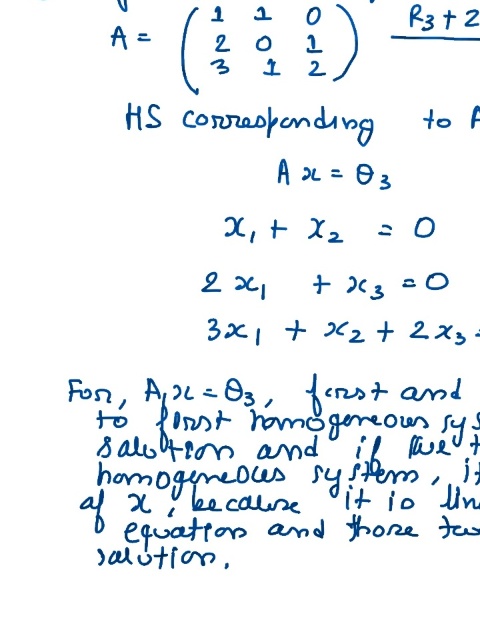 A = ( 1 1 0 R3 + 2
2 0 1
3 1 2 )
HS corresponding to A
A x = θ3
x1 + x2 = 0
2 x1 + x3 = 0
3x1 + x2 + 2x3 =
For, A1x = θ3, first and
to first homogeneous sys
salution and if we t
homogeneous system, it
af x, because it is lin
equation and those tw
salution.